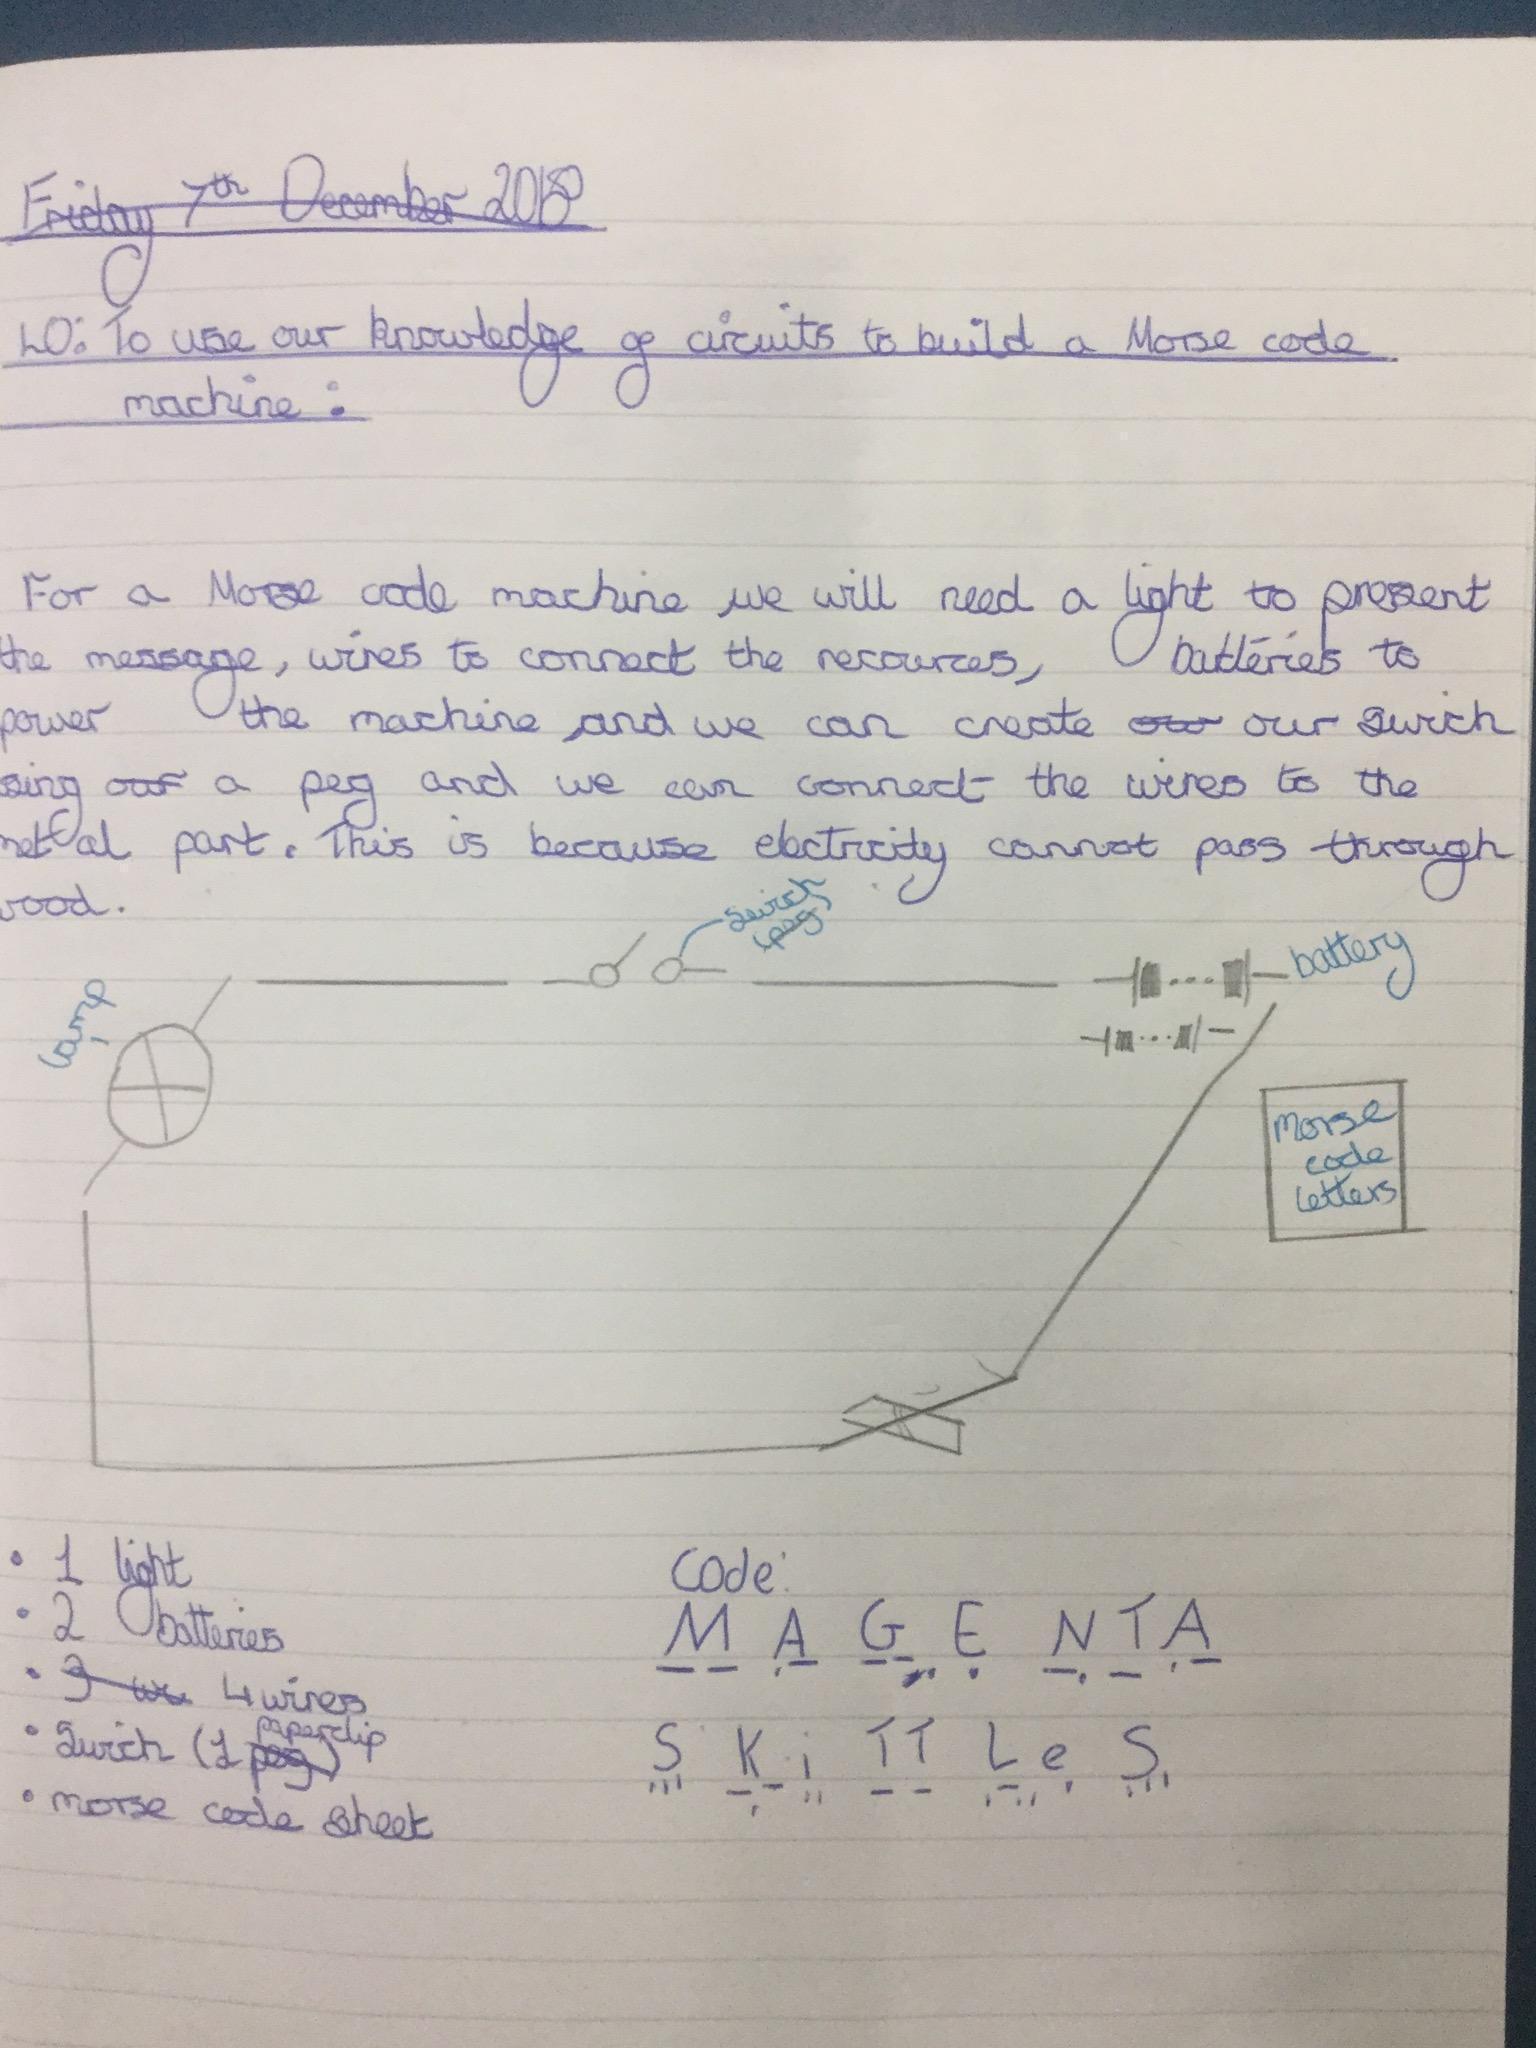 Friday 7th December 2018
LO: To use our knowledge of circuits to build a Morse code
machine:
For a Morse code machine we will need a light to present
the message, wires to connect the recources, batteries to
power the machine and we can create our swich
sing a peg and we can connect the wires to the
metal part. This is because electricity cannot pass through
wood.
swich
(peg)
lamp
battery
Morse
code
letters
• 1 light
• 2 batteries
• 4 wires
• Swich (1 paperclip)
• morse code sheet
Code:
M A G E N T A
-- .- --. . -. - .-
S K i T T L e S
... -.- .. - - .-.. . ...